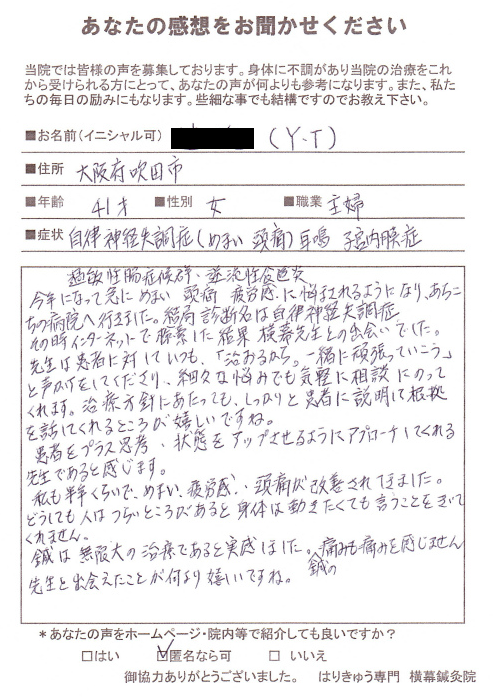 あなたの感想をお聞かせください
当院では皆様の声を募集しております。身体に不調があり当院の治療をこれ
から受けられる方にとって、あなたの声が何よりも参考になります。また、私た
ちの毎日の励みにもなります。些細な事でも結構ですのでお教え下さい。
■お名前(イニシャル可) (Y・T)
■住所 大阪府吹田市
■年齢 41才 ■性別 女 ■職業 主婦
■症状 自律神経失調症(めまい 頭痛)耳鳴 子宮内膜症
過敏性腸症候群・逆流性食道炎
今年になって急に めまい 頭痛 疲労感に悩まされるようになり、あちこ
ちの病院へ行きました。結局診断名は自律神経失調症
その時インターネットで検索した結果 横幕先生との出会いでした。
先生は患者に対していつも、「治るから。一緒に頑張っていこう」
と声かけをしてくださり、細々な悩みでも気軽に相談にのって
くれます。治療方針にあたっても、しっかりと患者に説明して根拠
を話してくれるところが嬉しいですね。
患者をプラス思考・状態をアップさせるようにアプローチしてくれる
先生であると感じます。
私も半年くらいで、めまい、疲労感、頭痛が改善されてきました。
どうしても人はつらいところがあると身体は動きたくても言うことをきいて
くれません。
鍼は無限大の治療であると実感しました。鍼の痛みも痛みを感じません
先生と出会えたことが何より嬉しいですね。
*あなたの声をホームページ・院内等で紹介しても良いですか?
□はい ☑匿名なら可 □いいえ
御協力ありがとうございました。 はりきゅう専門 横幕鍼灸院